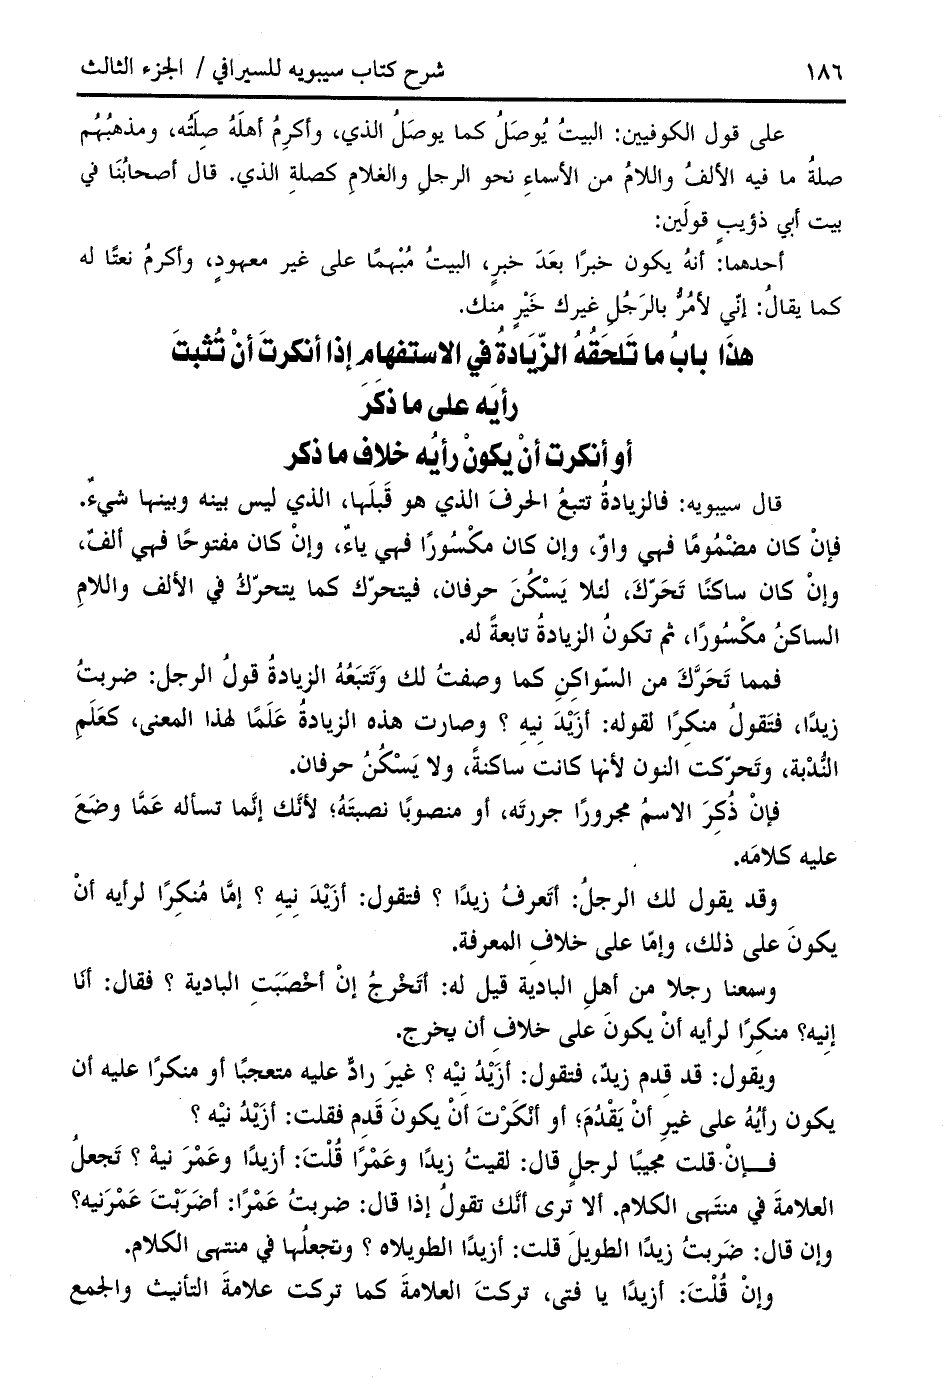 ١٨٦ شرح كتاب سيبويه للسيرافي / الجزء الثالث
على قول الكوفيين: البيتُ يُوصَلُ كما يوصَلُ الذي، وأكرِمُ أهلَهُ صِلَتُه، ومذهبُهُم
صلةُ ما فيه الألفُ واللامُ من الأسماءِ نحو الرجلِ والغلامِ كصلةِ الذي. قال أصحابُنَا في
بيت أبي ذؤيبٍ قولَين:
أحدهما: أنهُ يكون خبرًا بعَدَ خبرٍ، البيتُ مُبْهمًا على غير معهودٍ، وأكرمُ نعتًا له
كما يقالُ: إنّي لأمُرُّ بالرَجُلِ غيرك خَيْرٍ منك.
هذَا بابُ ما تَلحَقُهُ الزّيَادةُ في الاستفهامِ إذا أنكرتَ أنْ تُثبتَ
رأيَه على ما ذكَرَ
أو أنكرت أنْ يكونْ رأيُه خلاف ما ذكر
قال سيبويه: فالزيادةُ تتبعُ الحرفَ الذي هو قَبلَها، الذي ليس بينه وبينها شيءٌ.
فإنْ كان مضْمُومًا فهي واوٌ، وإن كان مكْسُورًا فهي ياءٌ، وإنْ كان مفتوحًا فهي ألفٌ،
وإنْ كان ساكنًا تَحَرّكَ، لئلا يَسْكُنَ حرفان، فيتحرّك كما يتحركُ في الألف واللامِ
الساكنُ مكْسُورًا، ثم تكونُ الزيادةُ تابعةً له.
فمما تَحَرَّكَ من السّواكنِ كما وصفتُ لك وَتَتبَعُهُ الزيادةُ قولُ الرجل: ضربتُ
زيدًا، فتَقولُ منكرًا لقوله: أزَيْدَ نِيه ؟ وصارت هذه الزيادةُ عَلَمًا لهذا المعنى، كعَلَمِ
النُّدْبة، وتَحرّكت النون لأنها كانت ساكنةً، ولا يَسْكُنُ حرفان.
فإنْ ذُكِرَ الاسمُ مجرورًا جررتَه، أو منصوبًا نصبتَهُ؛ لأنَّك إنَّما تسأله عَمَّا وضَعَ
عليه كلامَه.
وقد يقول لك الرجلُ: أتَعرفُ زيدًا ؟ فتقول: أزَيْدَ نِيهِ ؟ إمَّا مُنكِرًا لرأيه أنْ
يكونَ على ذلك، وإمّا على خلافِ المعرفة.
وسمعنا رجلا من أهلِ البادية قيل له: أتَخْرجُ إنْ أخْصَبَت البادية ؟ فقال: أنَا
إنِيه؟ منكِرًا لرأيه أنْ يكونَ على خلافِ أن يخرج.
ويقول: قد قدم زيدٌ، فتقول: أزَيْدُ نيْه ؟ غيرَ رادٍّ عليه متعجبًا أو منكرًا عليه أن
يكون رأيُهُ على غيرِ أنْ يَقْدُمَ؛ أو أنْكَرْتَ أنْ يكونَ قَدِم فقلت: أزَيْدُ نيْه ؟
فـإنْ قلت مجيبًا لرجلٍ قال: لقيتُ زيدًا وعَمْرًا قُلْتَ: أزيدًا وعَمْرَ نيهْ ؟ تَجعلُ
العلامةَ في منتَهى الكلام. ألا ترى أنَّك تقولُ إذا قال: ضربتُ عَمْرًا: أضَرَبْتَ عَمْرَنيه؟
وإن قال: ضَربتُ زيدًا الطويلَ قلت: أزيدًا الطويلاه ؟ وتَجعلُها في منتهى الكلام.
وإنْ قُلْتَ: أزيدًا يا فتى، تركتَ العلامةَ كما تركت علامةَ التأنيث والجمع